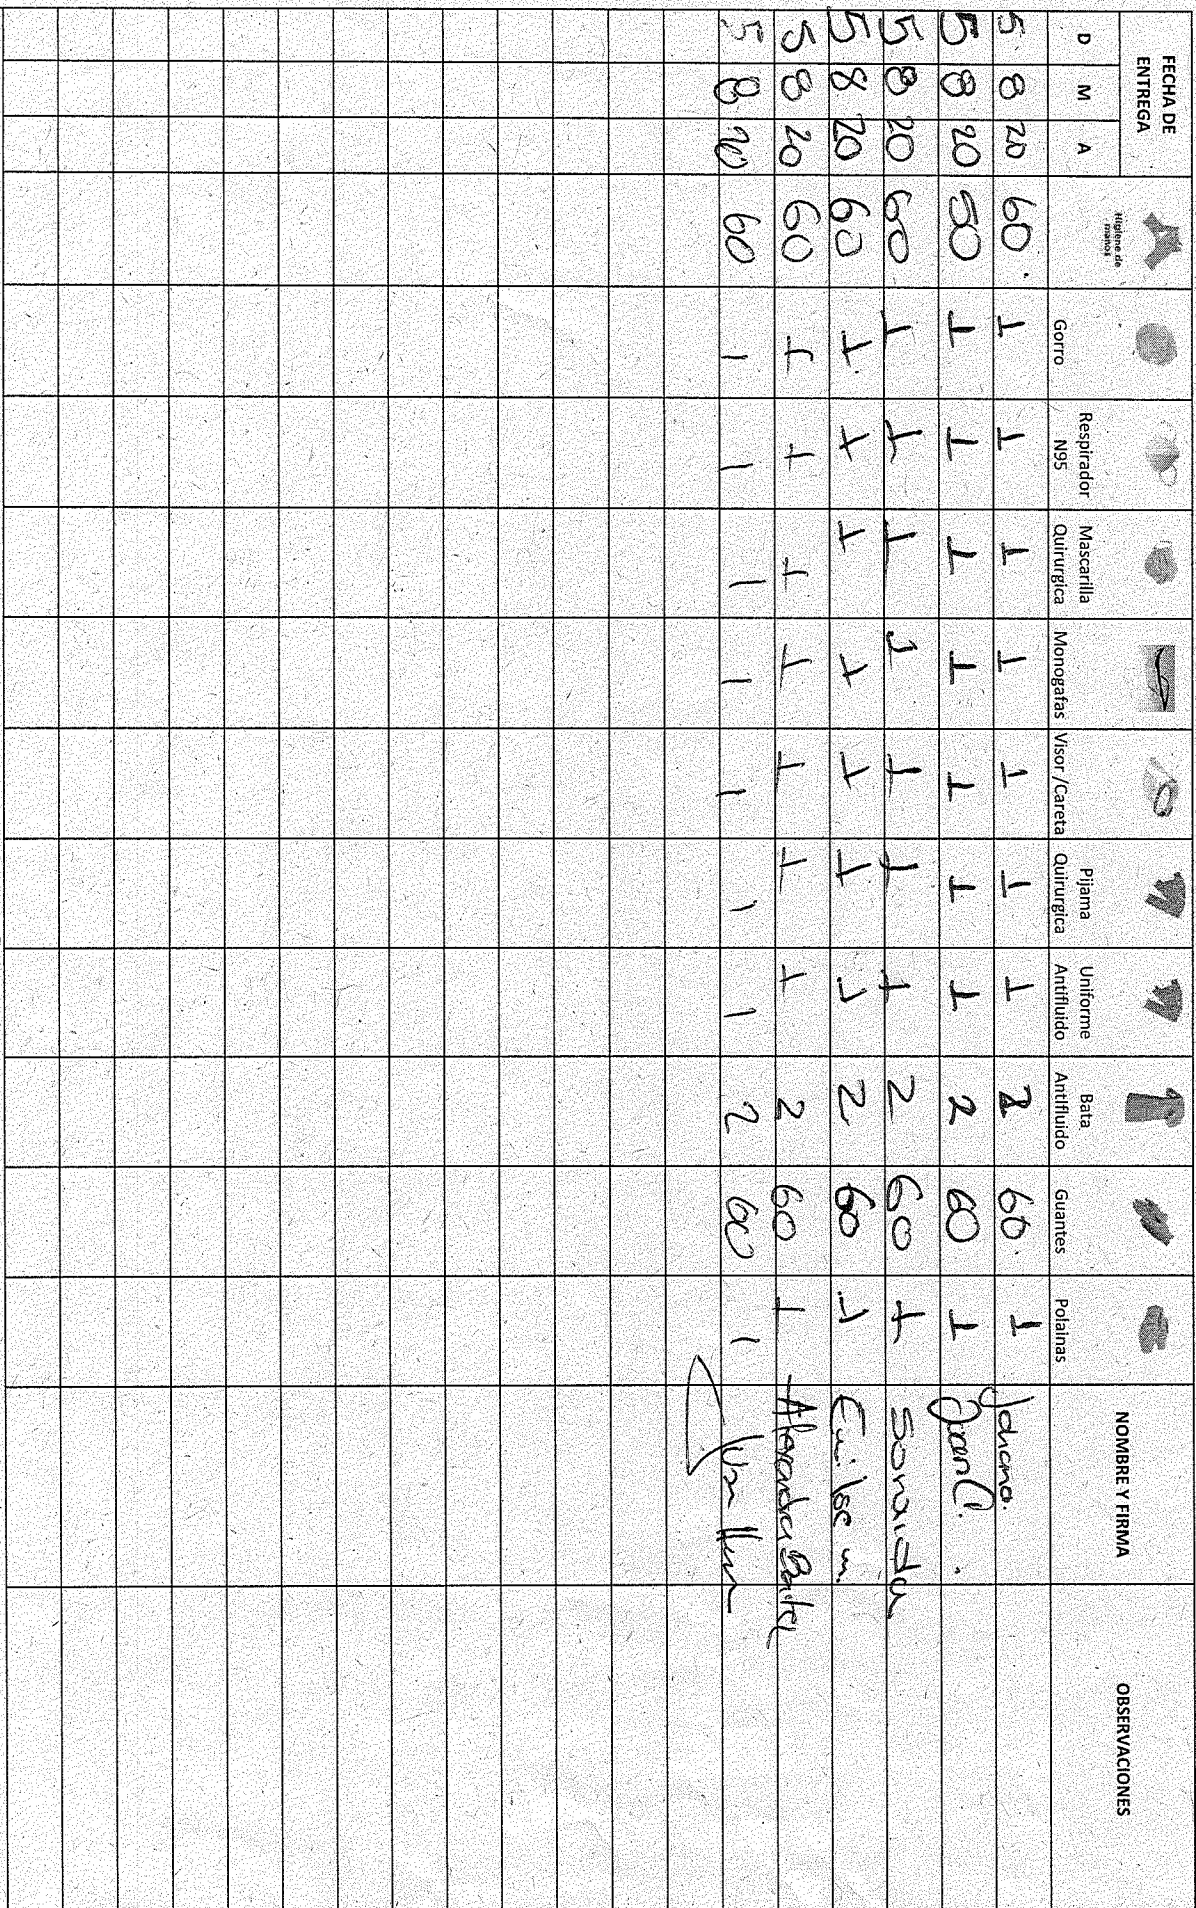 FECHA DE ENTREGA
D M A
Higiene de manos
Gorro
Respirador N95
Mascarilla Quirurgica
Monogafas
Visor /Careta
Pijama Quirurgica
Uniforme Antifluido
Bata Antifluido
Guantes
Polainas
NOMBRE Y FIRMA
OBSERVACIONES
5 8 20 60 1 1 1 1 1 1 1 2 60 1 Johana.
5 8 20 50 1 1 1 1 1 1 1 2 60 1
5 8 20 60 1 1 1 1 1 1 1 2 60 1
5 8 20 60 1 1 1 1 1 1 1 2 60 1 Emilse m.
5 8 20 60 1 1 1 1 1 1 1 2 60 1
5 8 20 60 1 1 1 1 1 1 1 2 60 1